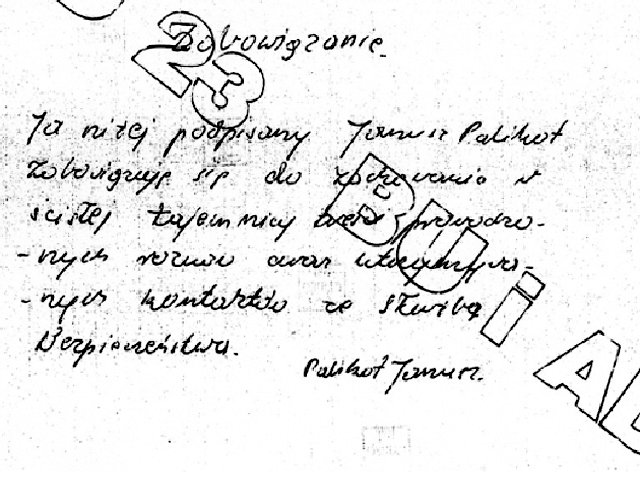 Zobowiązanie.
23
Ja niżej podpisany Janusz Palikot
Zobowiązuję się do zachowania w
ścisłej tajemnicy treści prowadzo-
-nych rozmów oraz utrzymywa-
-nych kontaktów ze Służbą
Bezpieczeństwa.
Palikot Janusz.
BU i A